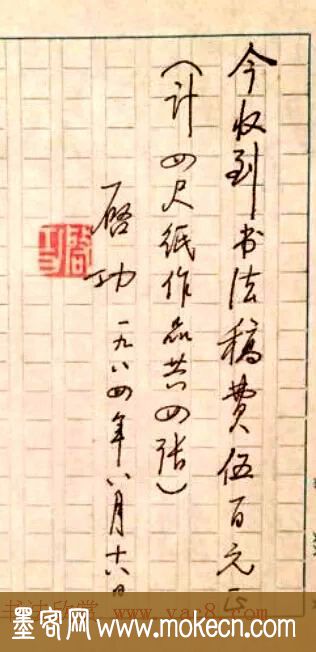 今收到书法稿费伍百元正
（计四尺纸作品共四张）
启功 一九八四年八月十六日
启功
书法欣赏 www.yac8.com
墨客网 www.mokecn.com